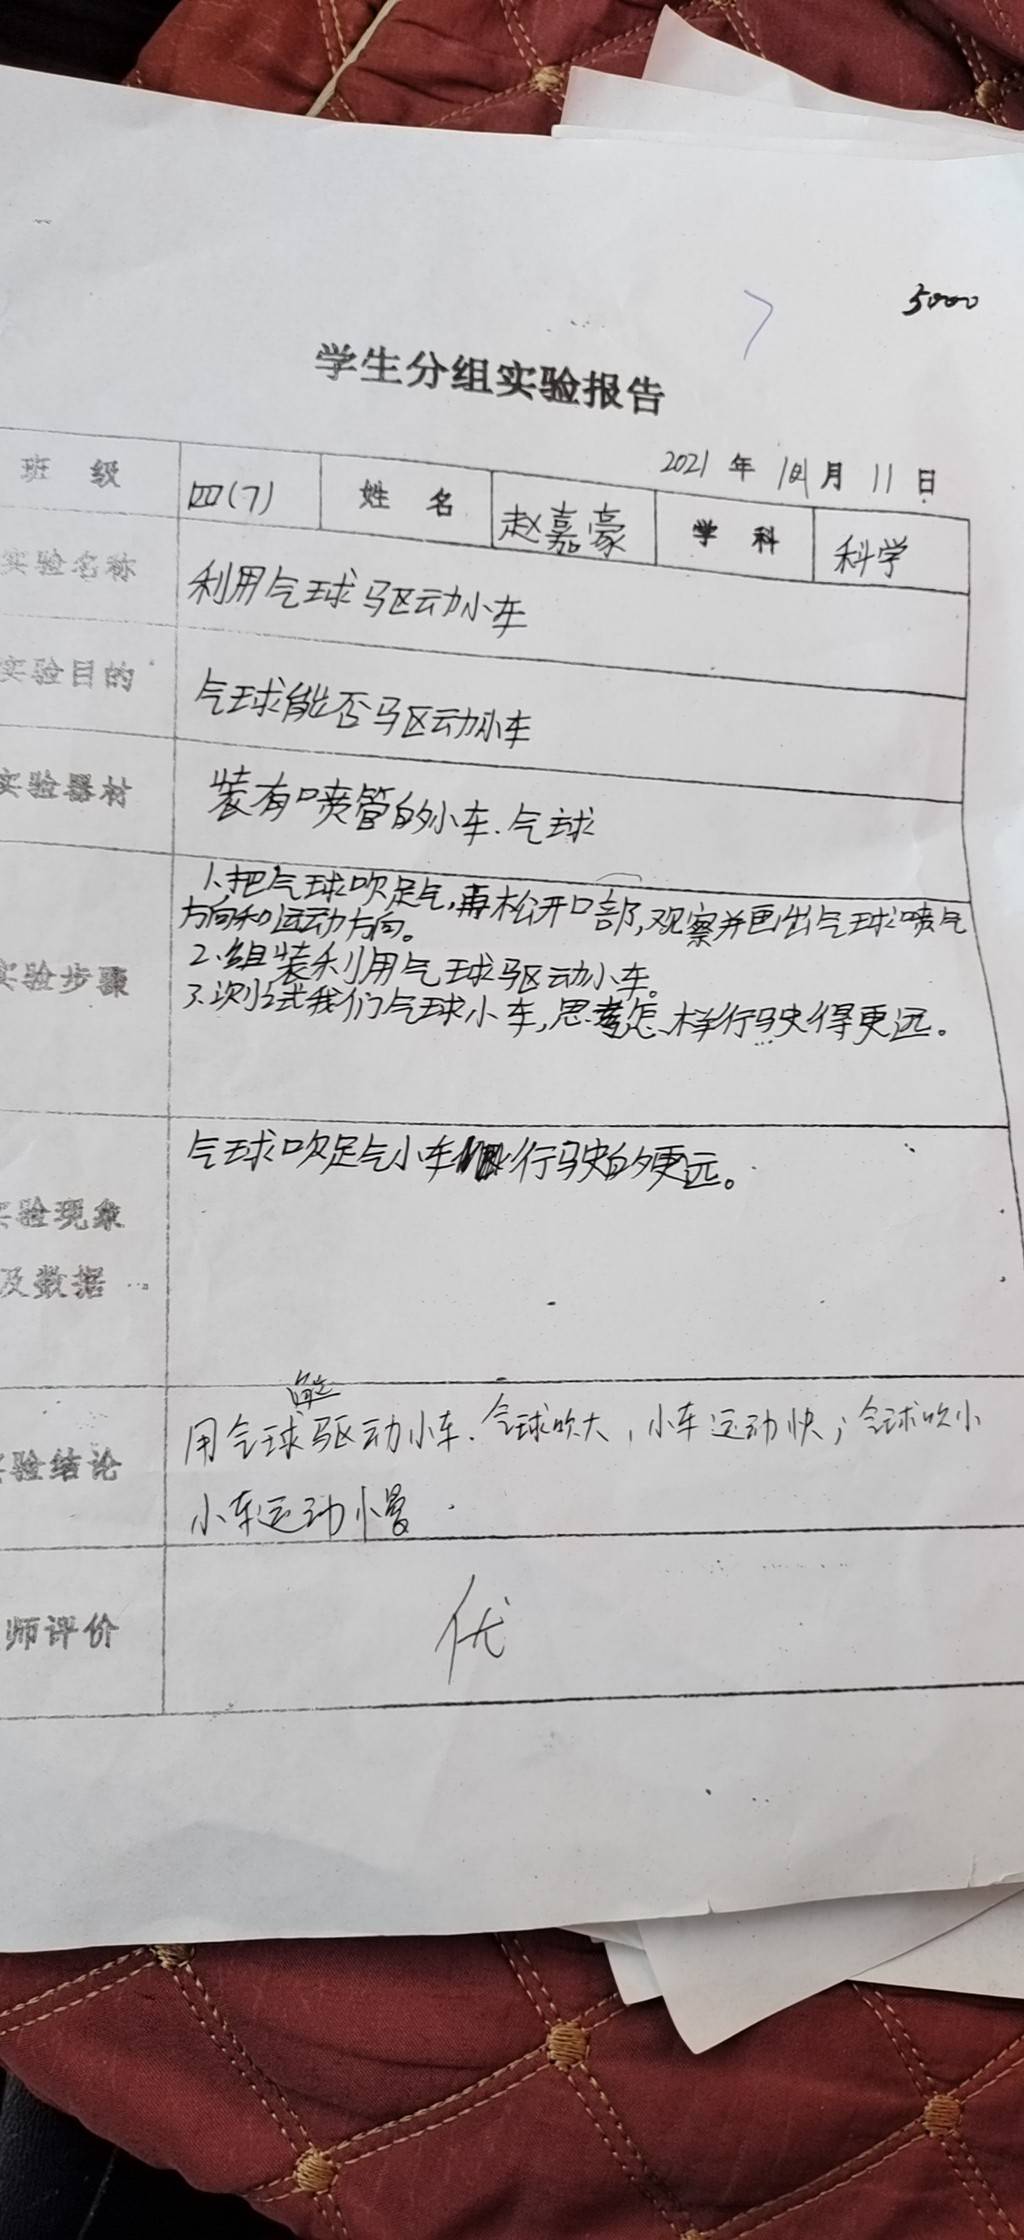 5000
学生分组实验报告
2021 年 月 11 日
班 级 四(7) 姓 名 赵嘉豪 学 科 科学
实验名称 利用气球驱动小车
实验目的 气球能否驱动小车
实验器材 装有喷管的小车.气球
1.把气球吹足气,再松开口部,观察并画出气球喷气
方向和运动方向。
实验步骤 2.组装利用气球驱动小车。
3.测试我们气球小车,思考怎样行驶得更远。
气球吹足气小车行驶的更远。
实验现象
及数据
能
用气球驱动小车.气球吹大,小车运动快;气球吹小
实验结论
小车运动慢
师评价 优